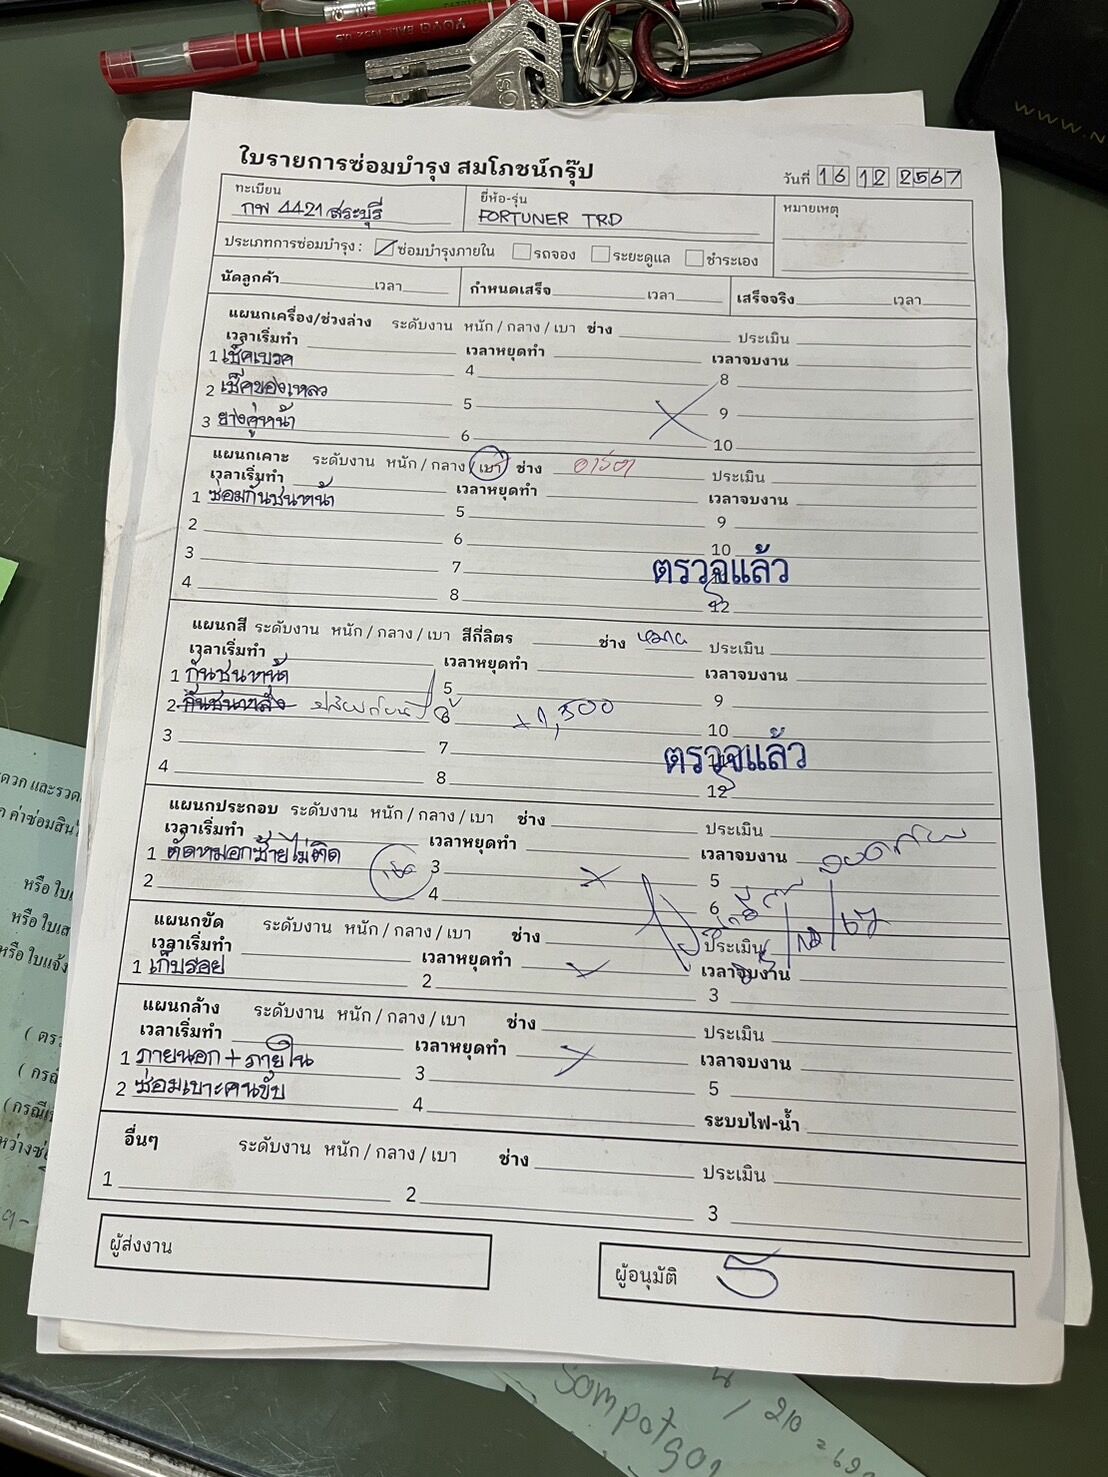 ใบรายการซ่อมบำรุง สมโภชน์กรุ๊ป
วันที่ 16 12 2567
ทะเบียน กพ 4421 สระบุรี
ยี่ห้อ-รุ่น FORTUNER TRD
หมายเหตุ
ประเภทการซ่อมบำรุง : ซ่อมบำรุงภายใน รถจอง ระยะดูแล ชำระเอง
นัดลูกค้า เวลา กำหนดเสร็จ เวลา เสร็จจริง เวลา
แผนกเครื่อง/ช่วงล่าง ระดับงาน หนัก / กลาง / เบา ช่าง ประเมิน
เวลาเริ่มทำ เวลาหยุดทำ เวลาจบงาน
1 เช็คเบรค 4 8
2 เช็คของเหลว 5 9
3 ยางคู่หน้า 6 10
แผนกเคาะ ระดับงาน หนัก / กลาง / เบา ช่าง ประเมิน
เวลาเริ่มทำ เวลาหยุดทำ เวลาจบงาน
1 ซ่อมกันชนหน้า 5 9
2 6 10
3 7
ตรวจแล้ว
4 8 12
แผนกสี ระดับงาน หนัก / กลาง / เบา สีกี่ลิตร ช่าง ประเมิน
เวลาเริ่มทำ เวลาหยุดทำ เวลาจบงาน
1 กันชนหน้า 5 9
2 กันชนหลัง 6 1,500 10
3 7 11
ตรวจแล้ว
4 8 12
แผนกประกอบ ระดับงาน หนัก / กลาง / เบา ช่าง ประเมิน
เวลาเริ่มทำ เวลาหยุดทำ เวลาจบงาน
1 ตัดหมอกซ้ายไม่ติด 3 5
2 4 6
แผนกขัด ระดับงาน หนัก / กลาง / เบา ช่าง ประเมิน
เวลาเริ่มทำ เวลาหยุดทำ เวลาจบงาน
1 เก็บรอย 2 3
แผนกล้าง ระดับงาน หนัก / กลาง / เบา ช่าง ประเมิน
เวลาเริ่มทำ เวลาหยุดทำ เวลาจบงาน
1 ภายนอก + ภายใน 3 5
2 ซ่อมเบาะคนขับ 4 ระบบไฟ-น้ำ
อื่นๆ ระดับงาน หนัก / กลาง / เบา ช่าง ประเมิน
1 2 3
ผู้ส่งงาน
ผู้อนุมัติ